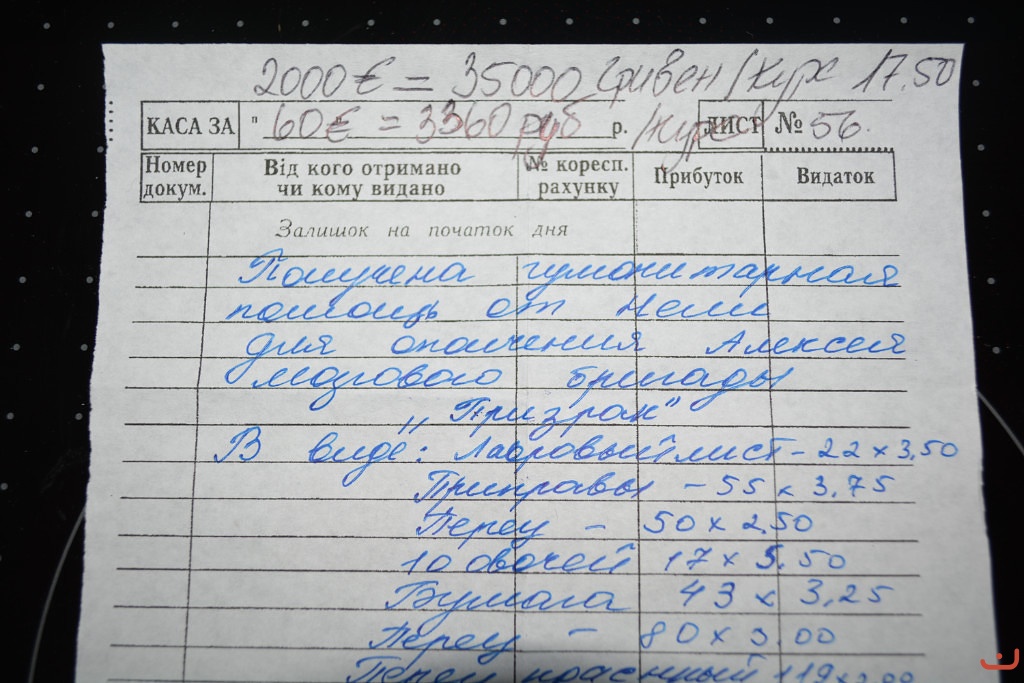 2000 € = 35000 Гривен / Курс 17.50
КАСА ЗА " 60 € = 3360 руб р. / Курс ЛИСТ № 56.
Номер докум. Від кого отримано чи кому видано № коресп. рахунку Прибуток Видаток
Залишок на початок дня
Получена гуманитарная
помощь от Нели
для ополчения Алексея
Мозгового бригады
„Призрак"
В виде: Лавровый лист - 22 x 3,50
Приправы - 55 x 3.75
Перец - 50 x 2.50
10 овочей 17 x 5.50
Бумага 43 x 3,25
Перец - 80 x 3.00
Перец красный 119 x